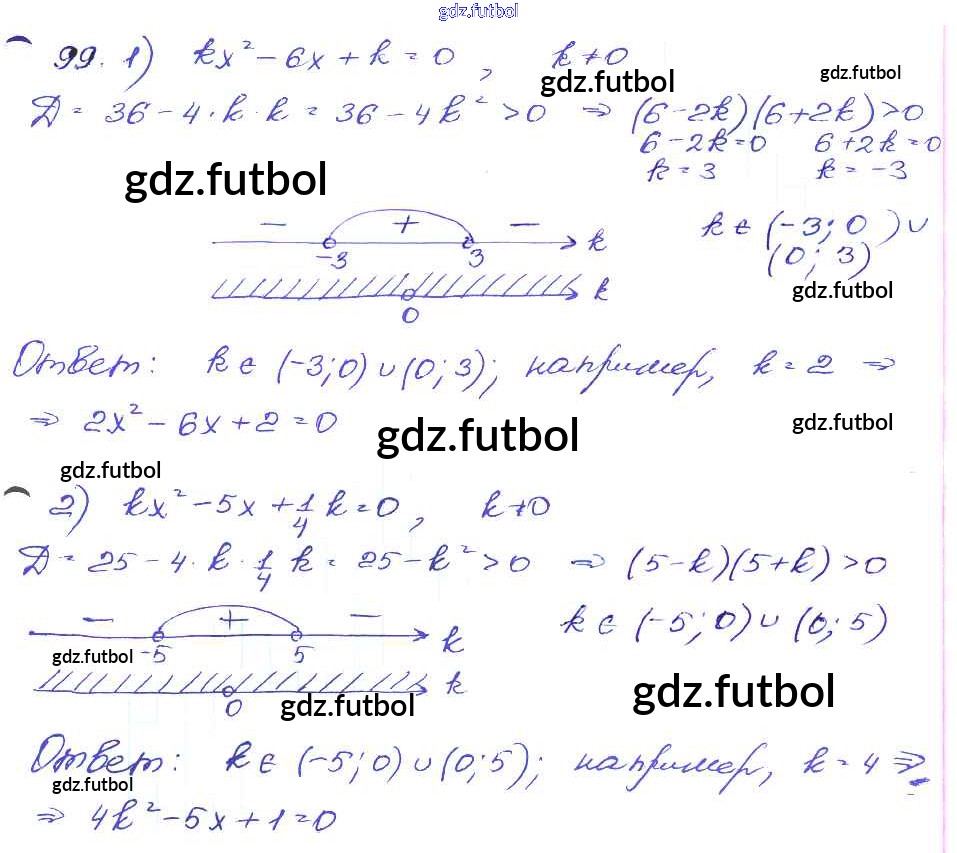 gdz.futbol
99. 1) kx² − 6x + k = 0, k ≠ 0
gdz.futbol gdz.futbol
Д = 36 − 4 · k · k = 36 − 4k² > 0 ⇒ (6 − 2k)(6 + 2k) > 0
6 − 2k = 0 6 + 2k = 0
k = 3 k = −3
gdz.futbol
− + − k ∈ (−3; 0) ∪
−3 3 k (0; 3)
k gdz.futbol
0
Ответ: k ∈ (−3; 0) ∪ (0; 3); например, k = 2 ⇒
⇒ 2x² − 6x + 2 = 0 gdz.futbol gdz.futbol
gdz.futbol
2) kx² − 5x + 1/4 k = 0, k ≠ 0
Д = 25 − 4 · k · 1/4 k = 25 − k² > 0 ⇒ (5 − k)(5 + k) > 0
− + − k ∈ (−5; 0) ∪ (0; 5)
gdz.futbol −5 5 k
k gdz.futbol
0 gdz.futbol
Ответ: k ∈ (−5; 0) ∪ (0; 5); например, k = 4 ⇒
gdz.futbol
⇒ 4k² − 5x + 1 = 0